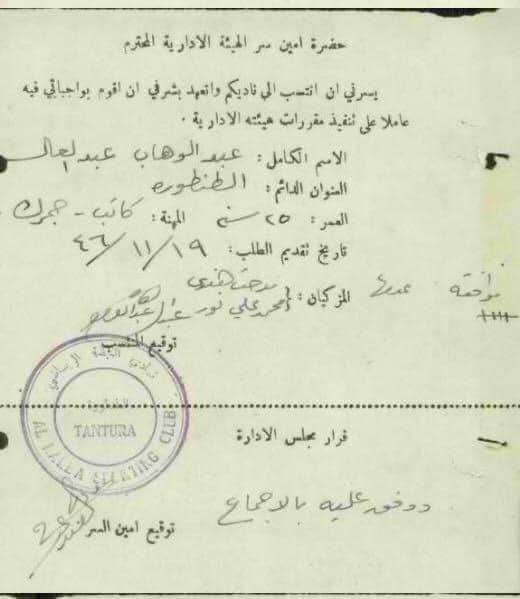 حضرة امين سر الهيئة الادارية المحترم
يسرني ان انتسب الى ناديكم واتعهد بشرفي ان اقوم بواجباتي فيه
عاملا على تنفيذ مقررات هيئته الادارية .
الاسم الكامل : عبد الوهاب عبد العال
العنوان الدائم : الطنطوره
العمر : ٢٥ سنه المهنة : كاتب - جمرك
تاريخ تقديم الطلب : ١٩/١١/٤٦
موافقة
المزكيان : { محمد علي نور
توقيع المنتسب
نادي الرياضي
الطنطورة
TANTURA
AL CLUB
قرار مجلس الادارة
ووفق عليه بالاجماع
توقيع امين السر